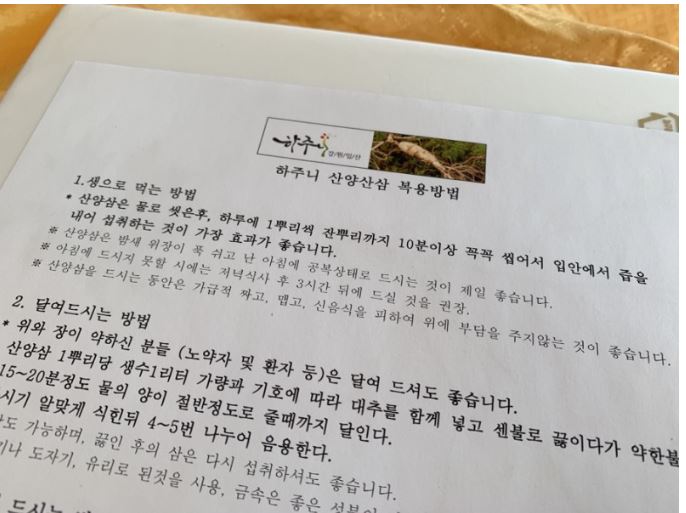 하주니
하주니 산양산삼 복용방법
1.생으로 먹는 방법
* 산양삼은 물로 씻은후, 하루에 1뿌리씩 잔뿌리까지 10분이상 꼭꼭 씹어서 입안에서 즙을
내어 섭취하는 것이 가장 효과가 좋습니다.
※ 산양삼은 밤새 위장이 푹 쉬고 난 아침에 공복상태로 드시는 것이 제일 좋습니다.
※ 아침에 드시지 못할 시에는 저녁식사 후 3시간 뒤에 드실 것을 권장.
※ 산양삼을 드시는 동안은 가급적 짜고, 맵고, 신음식을 피하여 위에 부담을 주지않는 것이 좋습니다.
2. 달여드시는 방법
* 위와 장이 약하신 분들 (노약자 및 환자 등)은 달여 드셔도 좋습니다.
산양삼 1뿌리당 생수1리터 가량과 기호에 따라 대추를 함께 넣고 센불로 끓이다가 약한불
15~20분정도 물의 양이 절반정도로 줄때까지 달인다.
시기 알맞게 식힌뒤 4~5번 나누어 음용한다.
가능하며, 끓인 후의 삼은 다시 섭취하셔도 좋습니다.
도자기, 유리로 된것을 사용, 금속은 좋은